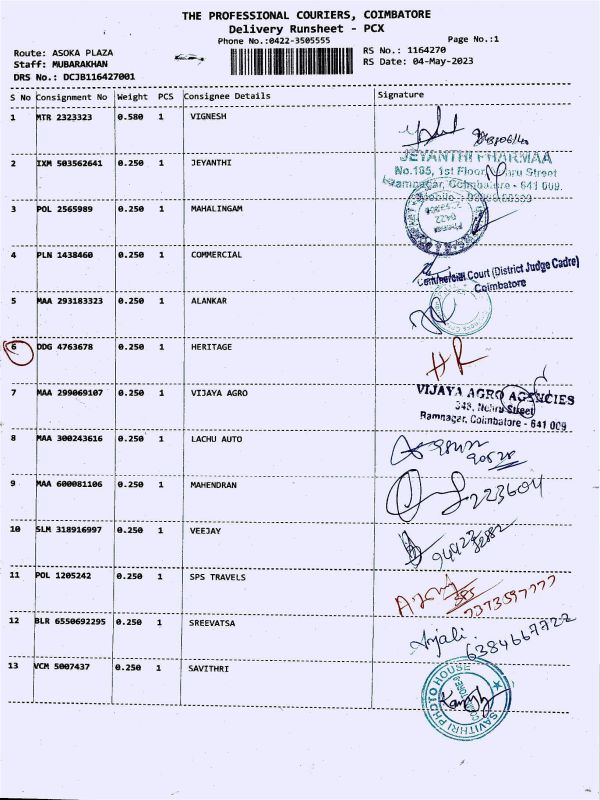 THE PROFESSIONAL COURIERS, COIMBATORE
Delivery Runsheet - PCX
Phone No.:0422-3505555 Page No.:1
Route: ASOKA PLAZA RS No.: 1164270
Staff: MUBARAKHAN RS Date: 04-May-2023
DRS No.: DCJB116427001
S No Consignment No Weight PCS Consignee Details Signature
1 MTR 2323323 0.580 1 VIGNESH
2 IXM 503562641 0.250 1 JEYANTHI
JEYANTHI PHARMAA
No.185, 1st Floor, Nehru Street
Ramnagar, Coimbatore - 641 009.
3 POL 2565989 0.250 1 MAHALINGAM
0422
4 PLN 1438460 0.250 1 COMMERCIAL
Commercial Court (District Judge Cadre)
Coimbatore
5 MAA 293183323 0.250 1 ALANKAR
6 DDG 4763678 0.250 1 HERITAGE HR
7 MAA 299069107 0.250 1 VIJAYA AGRO
VIJAYA AGRO AGENCIES
348, Nehru Street
Ramnagar, Coimbatore - 641 009
8 MAA 300243616 0.250 1 LACHU AUTO
9 MAA 600081106 0.250 1 MAHENDRAN 223604
10 SLM 318916997 0.250 1 VEEJAY
11 POL 1205242 0.250 1 SPS TRAVELS
7373597777
12 BLR 6550692295 0.250 1 SREEVATSA Anjali
6384667722
13 VCM 5007437 0.250 1 SAVITHRI
SAVITHRI PHOTO HOUSE